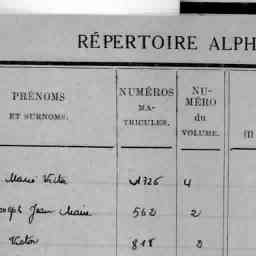 RÉPERTOIRE ALPH
PRÉNOMS
ET SURNOMS.
NUMÉROS
MA-
TRICULES.
NU-
MÉRO
du
VOLUME.
(1)
Marie Victor 1726 4
Joseph Jean Marie 562 2
Victor 818 2